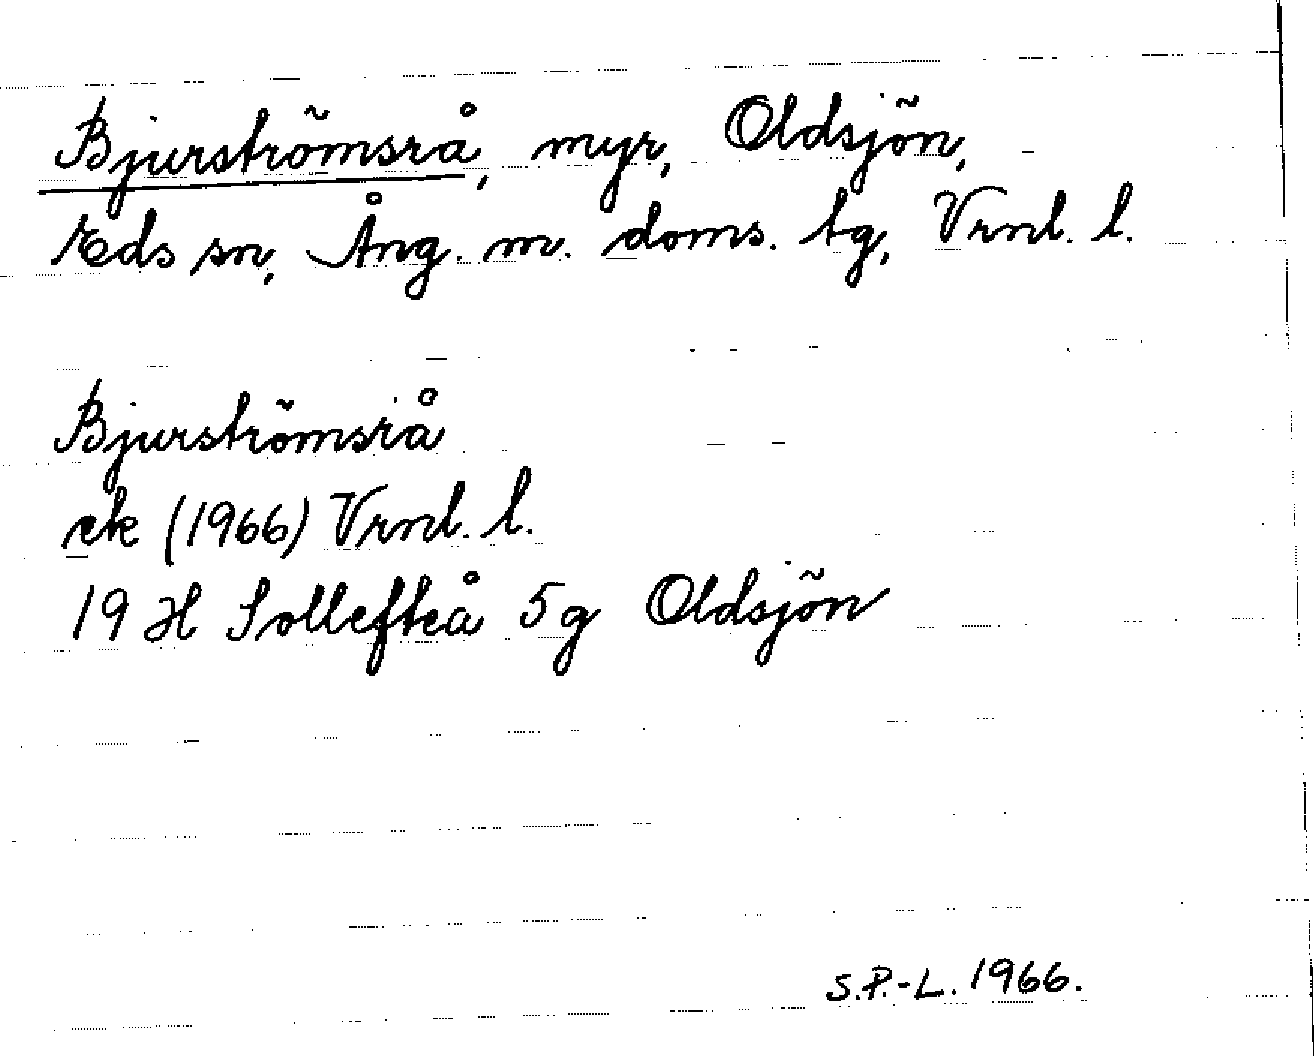 Bjurströmsrå, myr, Oldsjön,
Eds sn, Ång. m. doms. tg, Vrnl. l.
Bjurströmsrå
ek (1966) Vrnl. l.
19 H Sollefteå 5g Oldsjön
S.P.-L. 1966.